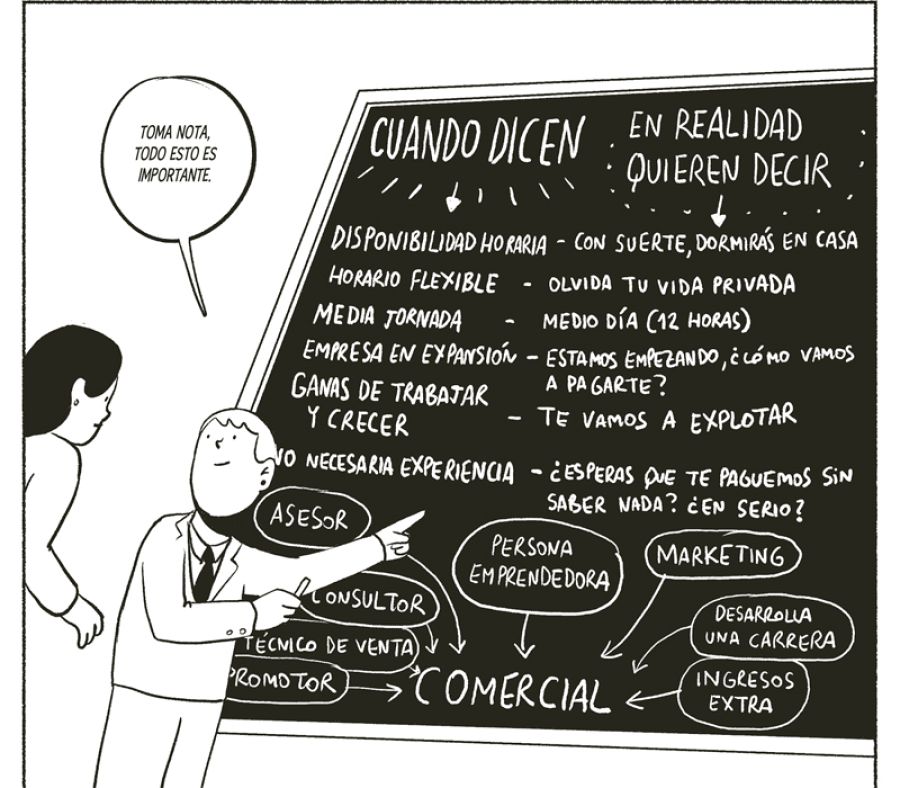 TOMA NOTA,
TODO ESTO ES
IMPORTANTE.
CUANDO DICEN
EN REALIDAD
QUIEREN DECIR
DISPONIBILIDAD HORARIA - CON SUERTE, DORMIRÁS EN CASA
HORARIO FLEXIBLE - OLVIDA TU VIDA PRIVADA
MEDIA JORNADA - MEDIO DÍA (12 HORAS)
EMPRESA EN EXPANSIÓN - ESTAMOS EMPEZANDO, ¿CÓMO VAMOS
A PAGARTE?
GANAS DE TRABAJAR
Y CRECER - TE VAMOS A EXPLOTAR
NO NECESARIA EXPERIENCIA - ¿ESPERAS QUE TE PAGUEMOS SIN
SABER NADA? ¿EN SERIO?
ASESOR
PERSONA
EMPRENDEDORA
MARKETING
CONSULTOR
DESARROLLA
UNA CARRERA
TÉCNICO DE VENTA
PROMOTOR
COMERCIAL
INGRESOS
EXTRA